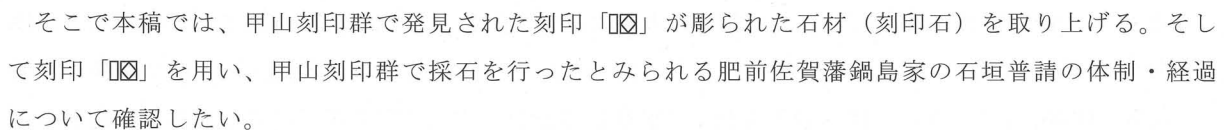 そこで本稿では、甲山刻印群で発見された刻印「▯◇」が彫られた石材（刻印石）を取り上げる。そし
て刻印「▯◇」を用い、甲山刻印群で採石を行ったとみられる肥前佐賀藩鍋島家の石垣普請の体制・経過
について確認したい。